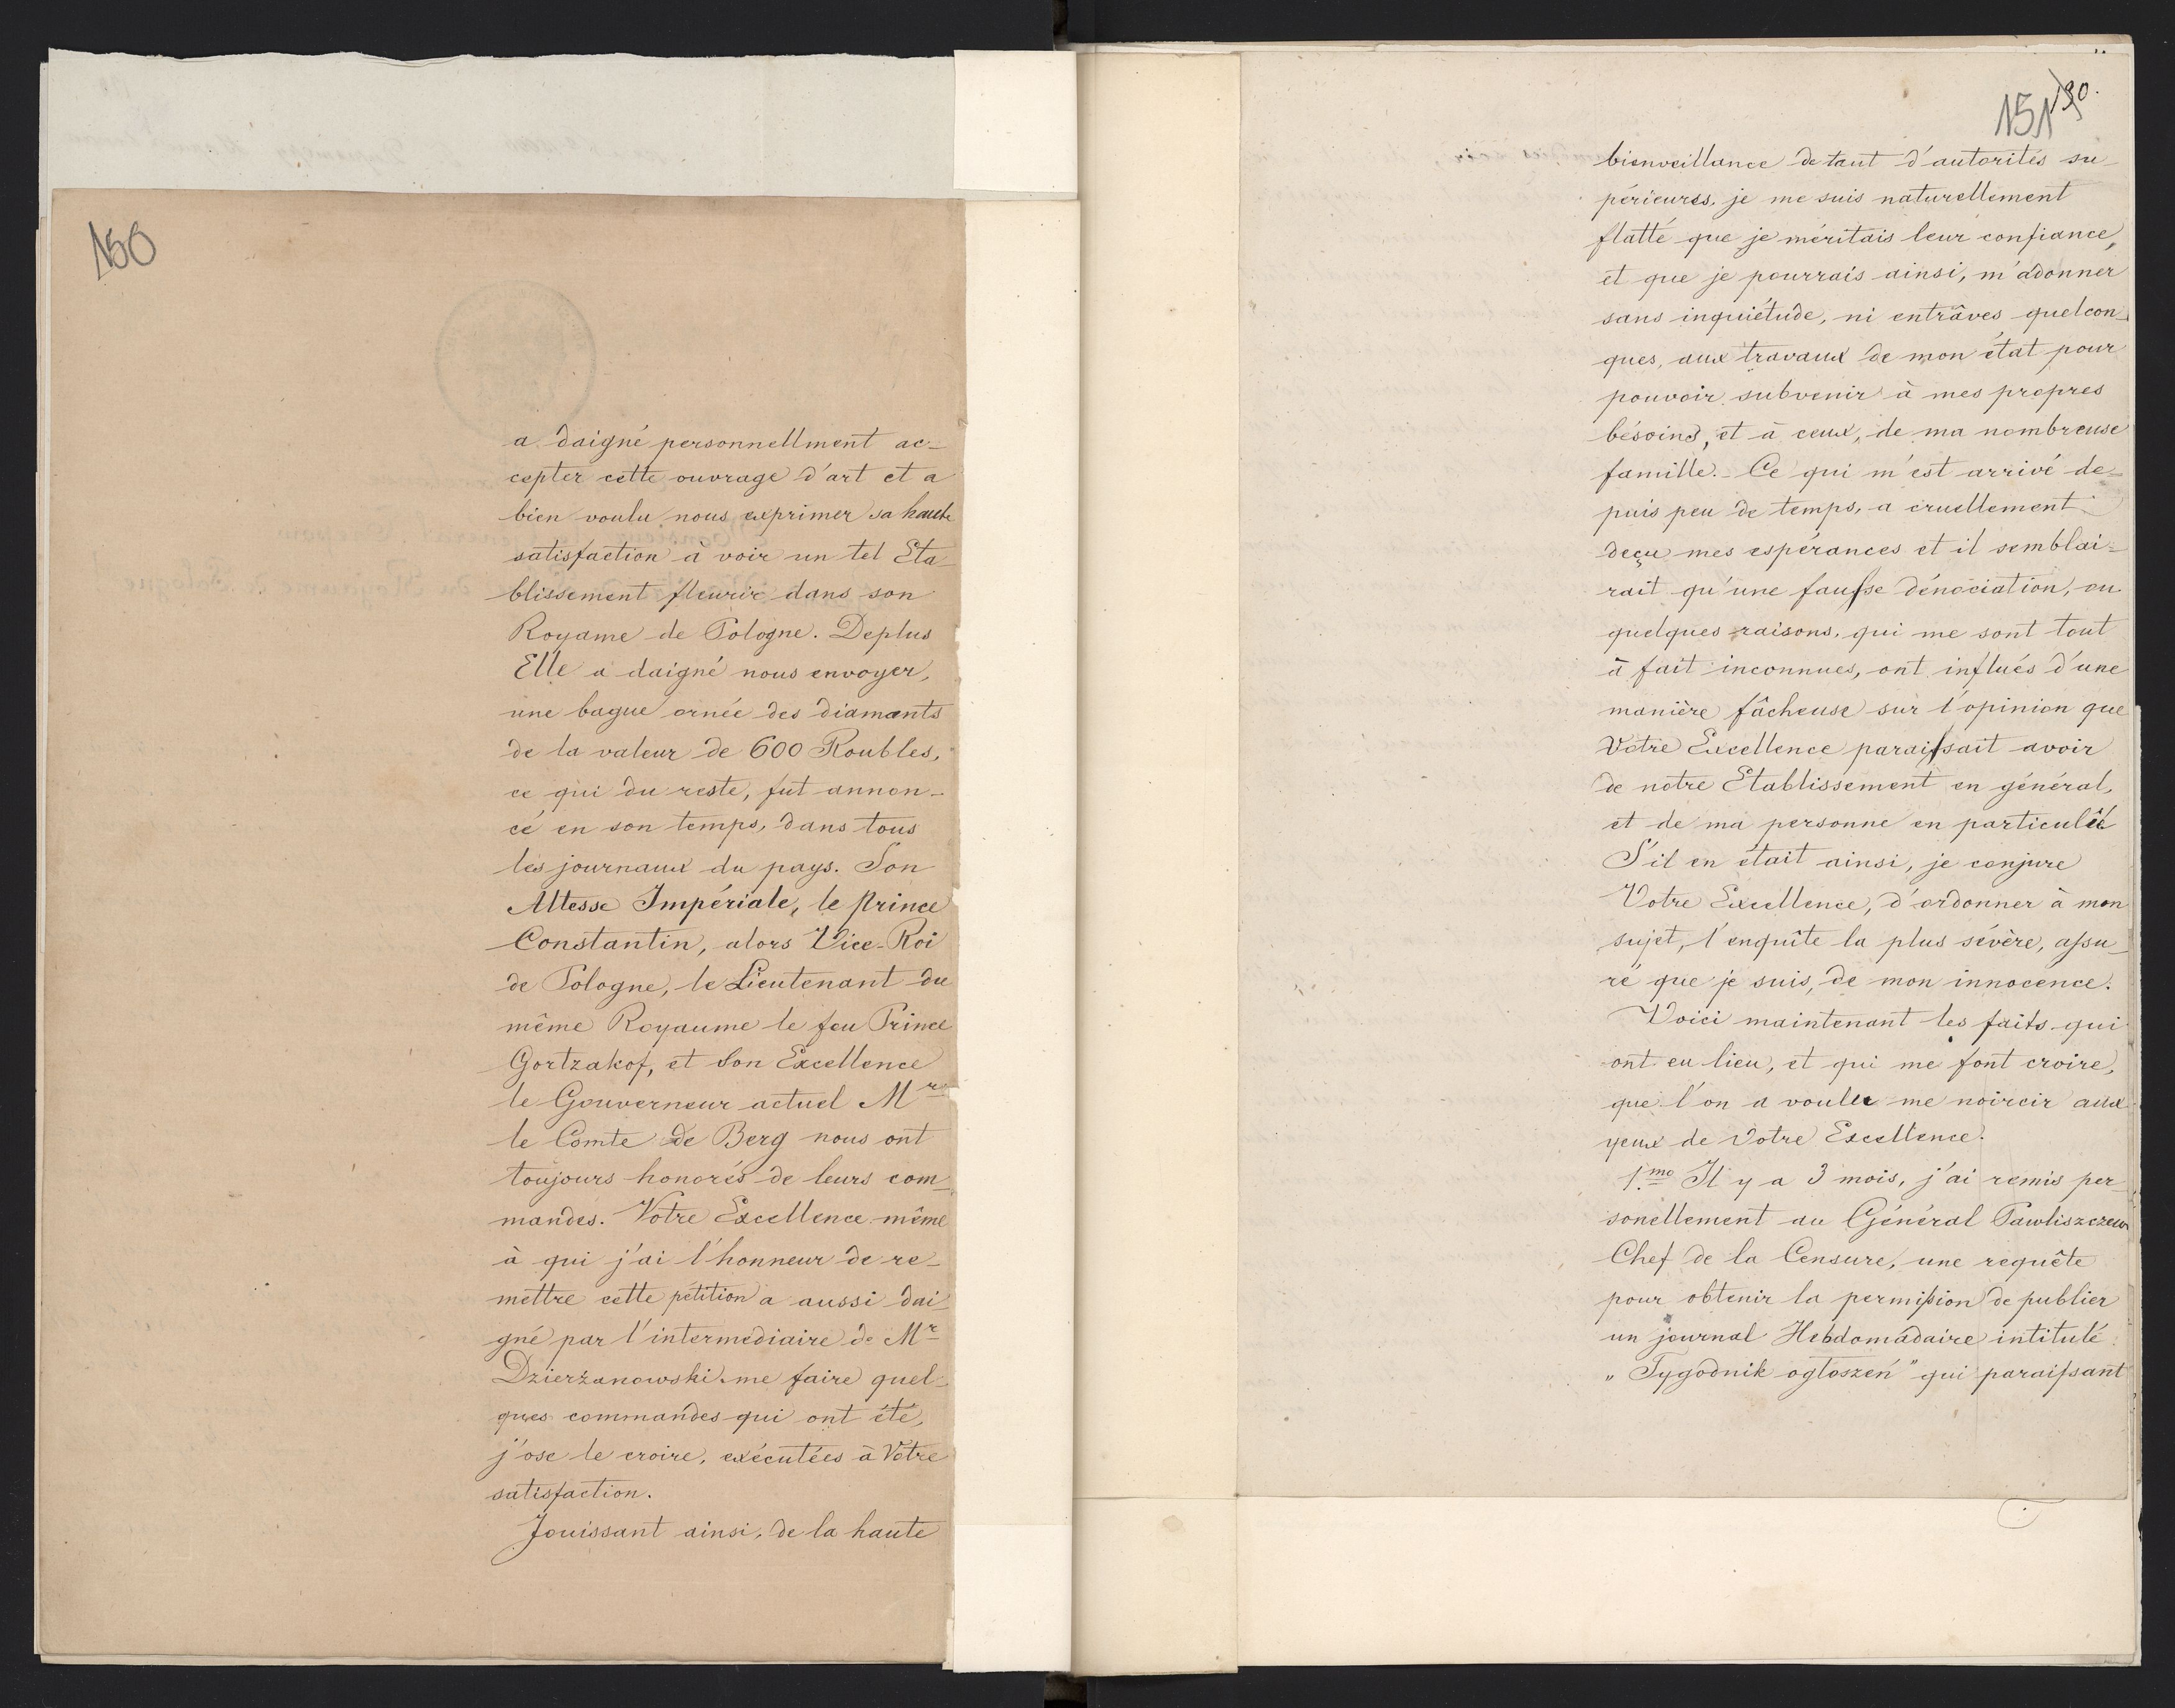 150
a daigné personnellment ac-
cepter cette ouvrage d'art et a
bien voulu nous exprimer sa haute
satisfaction à voir un tel Eta-
blissement fleurir dans son
Royame de Pologne. Deplus
Elle a daigné nous envoyer,
une bague ornée des diamants
de la valeur de 600 Roubles,
ce qui du reste, fut annon-
cé en son temps, dans tous
les journaux du pays. Son
Altesse Impériale, le Prince
Constantin, alors Vice-Roi
de Pologne, le Lieutenant du
même Royaume le feu Prince
Gortzakof, et Son Excellence
le Gouverneur actuel Mr
le Comte de Berg nous ont
toujours honorés de leurs com-
mandes. Votre Excellence même
à qui j'ai l'honneur de re-
mettre cette pétition a aussi dai-
gné par l'intermédiaire de Mr
Dzierżanowski me faire quel-
ques commandes qui ont été,
j'ose le croire, exécutées à Votre
satisfaction.
Jouissant ainsi, de la haute
151 130.
bienveillance de tant d'autorités su-
périeures, je me suis naturellement
flatté que je méritais leur confiance,
et que je pourrais ainsi, m'adonner
sans inquiétude, ni entrâves quelcon-
ques, aux travaux de mon état pour
pouvoir subvenir à mes propres
bésoins, et à ceux, de ma nombreuse
famille. Ce qui m'est arrivé de-
puis peu de temps, a cruellement
deçu mes espérances et il semblai-
rait qu'une fausse dénociation, ou
quelques raisons, qui me sont tout
à fait inconnues, ont influés d'une
manière fâcheuse sur l'opinion que
Votre Excellence paraissait avoir
de notre Etablissement en général,
et de ma personne en particulié
S'il en était ainsi, je conjure
Votre Excellence, d'ordonner à mon
sujet, l'enquîte la plus sévère, assu-
ré que je suis, de mon innocence.
Voici maintenant les faits qui
ont eu lieu, et qui me font croire,
que l'on a voulu me noircir aux
yeux de Votre Excellence.
1mo Il y a 3 mois, j'ai remis per-
sonellement au Général Pawliszczew
Chef de la Censure, une requête
pour obtenir la permission de publier
un journal Hebdomadaire intitulé
„Tygodnik ogłoszeń" qui paraissant